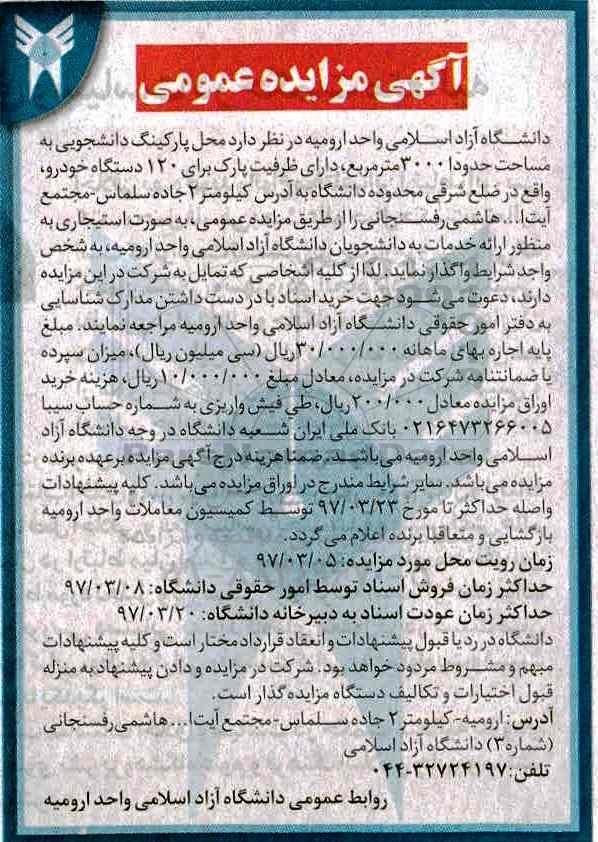 آگهی مزایده عمومی
دانشگاه آزاد اسلامی واحد ارومیه در نظر دارد محل پارکینگ دانشجویی به
مساحت حدودا ۳۰۰۰ مترمربع، دارای ظرفیت پارک برای ۱۲۰ دستگاه خودرو،
واقع در ضلع شرقی محدوده دانشگاه به آدرس کیلومتر ۲ جاده سلماس-مجتمع
آیت‌ا... هاشمی رفسنجانی را از طریق مزایده عمومی، به صورت استیجاری به
منظور ارائه خدمات به دانشجویان دانشگاه آزاد اسلامی واحد ارومیه، به شخص
واجد شرایط واگذار نماید. لذا از کلیه اشخاصی که تمایل به شرکت در این مزایده
دارند، دعوت می‌شود جهت خرید اسناد با در دست داشتن مدارک شناسایی
به دفتر امور حقوقی دانشگاه آزاد اسلامی واحد ارومیه مراجعه نمایند. مبلغ
پایه اجاره بهای ماهانه ۳۰/۰۰۰/۰۰۰ ریال (سی میلیون ریال)، میزان سپرده
یا ضمانتنامه شرکت در مزایده، معادل مبلغ ۱۰/۰۰۰/۰۰۰ ریال، هزینه خرید
اوراق مزایده معادل ۲۰۰/۰۰۰ ریال، طی فیش واریزی به شماره حساب سیبا
۰۲۱۶۴۷۳۲۶۶۰۰۵ بانک ملی ایران شعبه دانشگاه در وجه دانشگاه آزاد
اسلامی واحد ارومیه می‌باشد. ضمنا هزینه درج آگهی مزایده بر عهده برنده
مزایده می‌باشد. سایر شرایط مندرج در اوراق مزایده می‌باشد. کلیه پیشنهادات
واصله حداکثر تا مورخ ۹۷/۰۳/۲۳ توسط کمیسیون معاملات واحد ارومیه
بازگشایی و متعاقبا برنده اعلام می گردد.
زمان رویت محل مورد مزایده: ۹۷/۰۳/۰۵
حداکثر زمان فروش اسناد توسط امور حقوقی دانشگاه: ۹۷/۰۳/۰۸
حداکثر زمان عودت اسناد به دبیرخانه دانشگاه: ۹۷/۰۳/۲۰
دانشگاه در رد یا قبول پیشنهادات و انعقاد قرارداد مختار است و کلیه پیشنهادات
مبهم و مشروط مردود خواهد بود. شرکت در مزایده و دادن پیشنهاد به منزله
قبول اختیارات و تکالیف دستگاه مزایده گذار است.
آدرس: ارومیه-کیلومتر ۲ جاده سلماس-مجتمع آیت‌ا... هاشمی رفسنجانی
(شماره ۳) دانشگاه آزاد اسلامی
تلفن: ۰۴۴-۳۲۷۲۴۱۹۷
روابط عمومی دانشگاه آزاد اسلامی واحد ارومیه